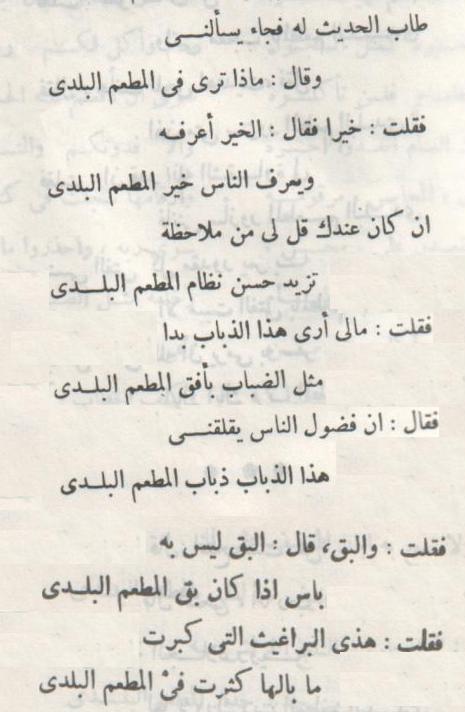 طاب الحديث له فجاء يسألنـــى
وقال : ماذا ترى فى المطعم البلدى
فقلت : خيرا فقال : الخير أعرفـه
ويعرف الناس خير المطعم البلدى
ان كان عندك قل لى من ملاحظة
تزيد حسن نظام المطعم البلـــدى
فقلت : مالى أرى هذا الذباب بدا
مثل الضباب بأفق المطعم البلـدى
فقال : ان فضول الناس يقلقنـــى
هذا الذباب ذباب المطعم البلـــدى
فقلت : والبق، قال : البق ليس به
باس اذا كان بق المطعم البلـــدى
فقلت : هذى البراغيث التى كبرت
ما بالها كثرت فى المطعم البلدى